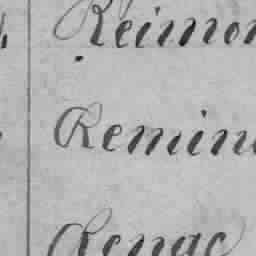 Reimon
Remin
Renac